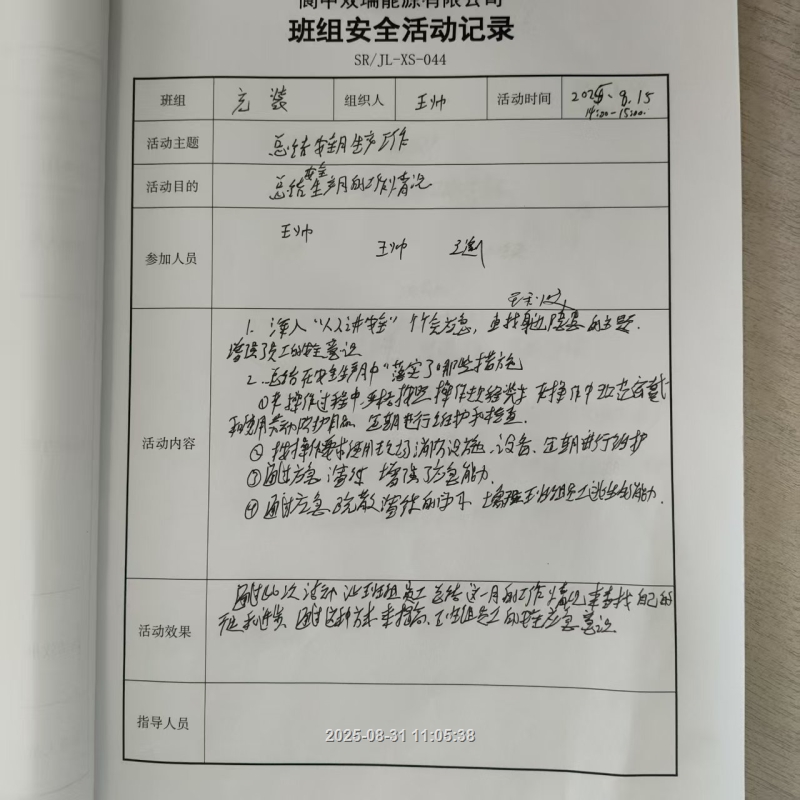 阆中双瑞能源有限公司
班组安全活动记录
SR/JL-XS-044
班组 充装 组织人 王帅 活动时间 2025.8.15
14:00-15:00
活动主题 总结安全月生产工作
活动目的 总结安全生产月的工作情况
参加人员 王帅
王帅
活动内容
1. 深入“人人讲安全” 个个会应急,查找身边隐患的主题.
增强了员工的安全意识
2. 总结在安全生产月中“落实了哪些措施
①在操作过程中严格按照操作规程 在操作中
和使用劳动防护用品 定期进行维护和检查.
②按操作要求使用现场消防设施、设备、定期进行维护
③通过应急演练 增强了应急能力.
④通过应急疏散演练的 增强班组员工逃生的能力.
活动效果 通过此次活动让班组员工总结这一月的工作情况来查找自己的
通过这种方式来提高班组员工的安全应急意识
指导人员
2025-08-31 11:05:38